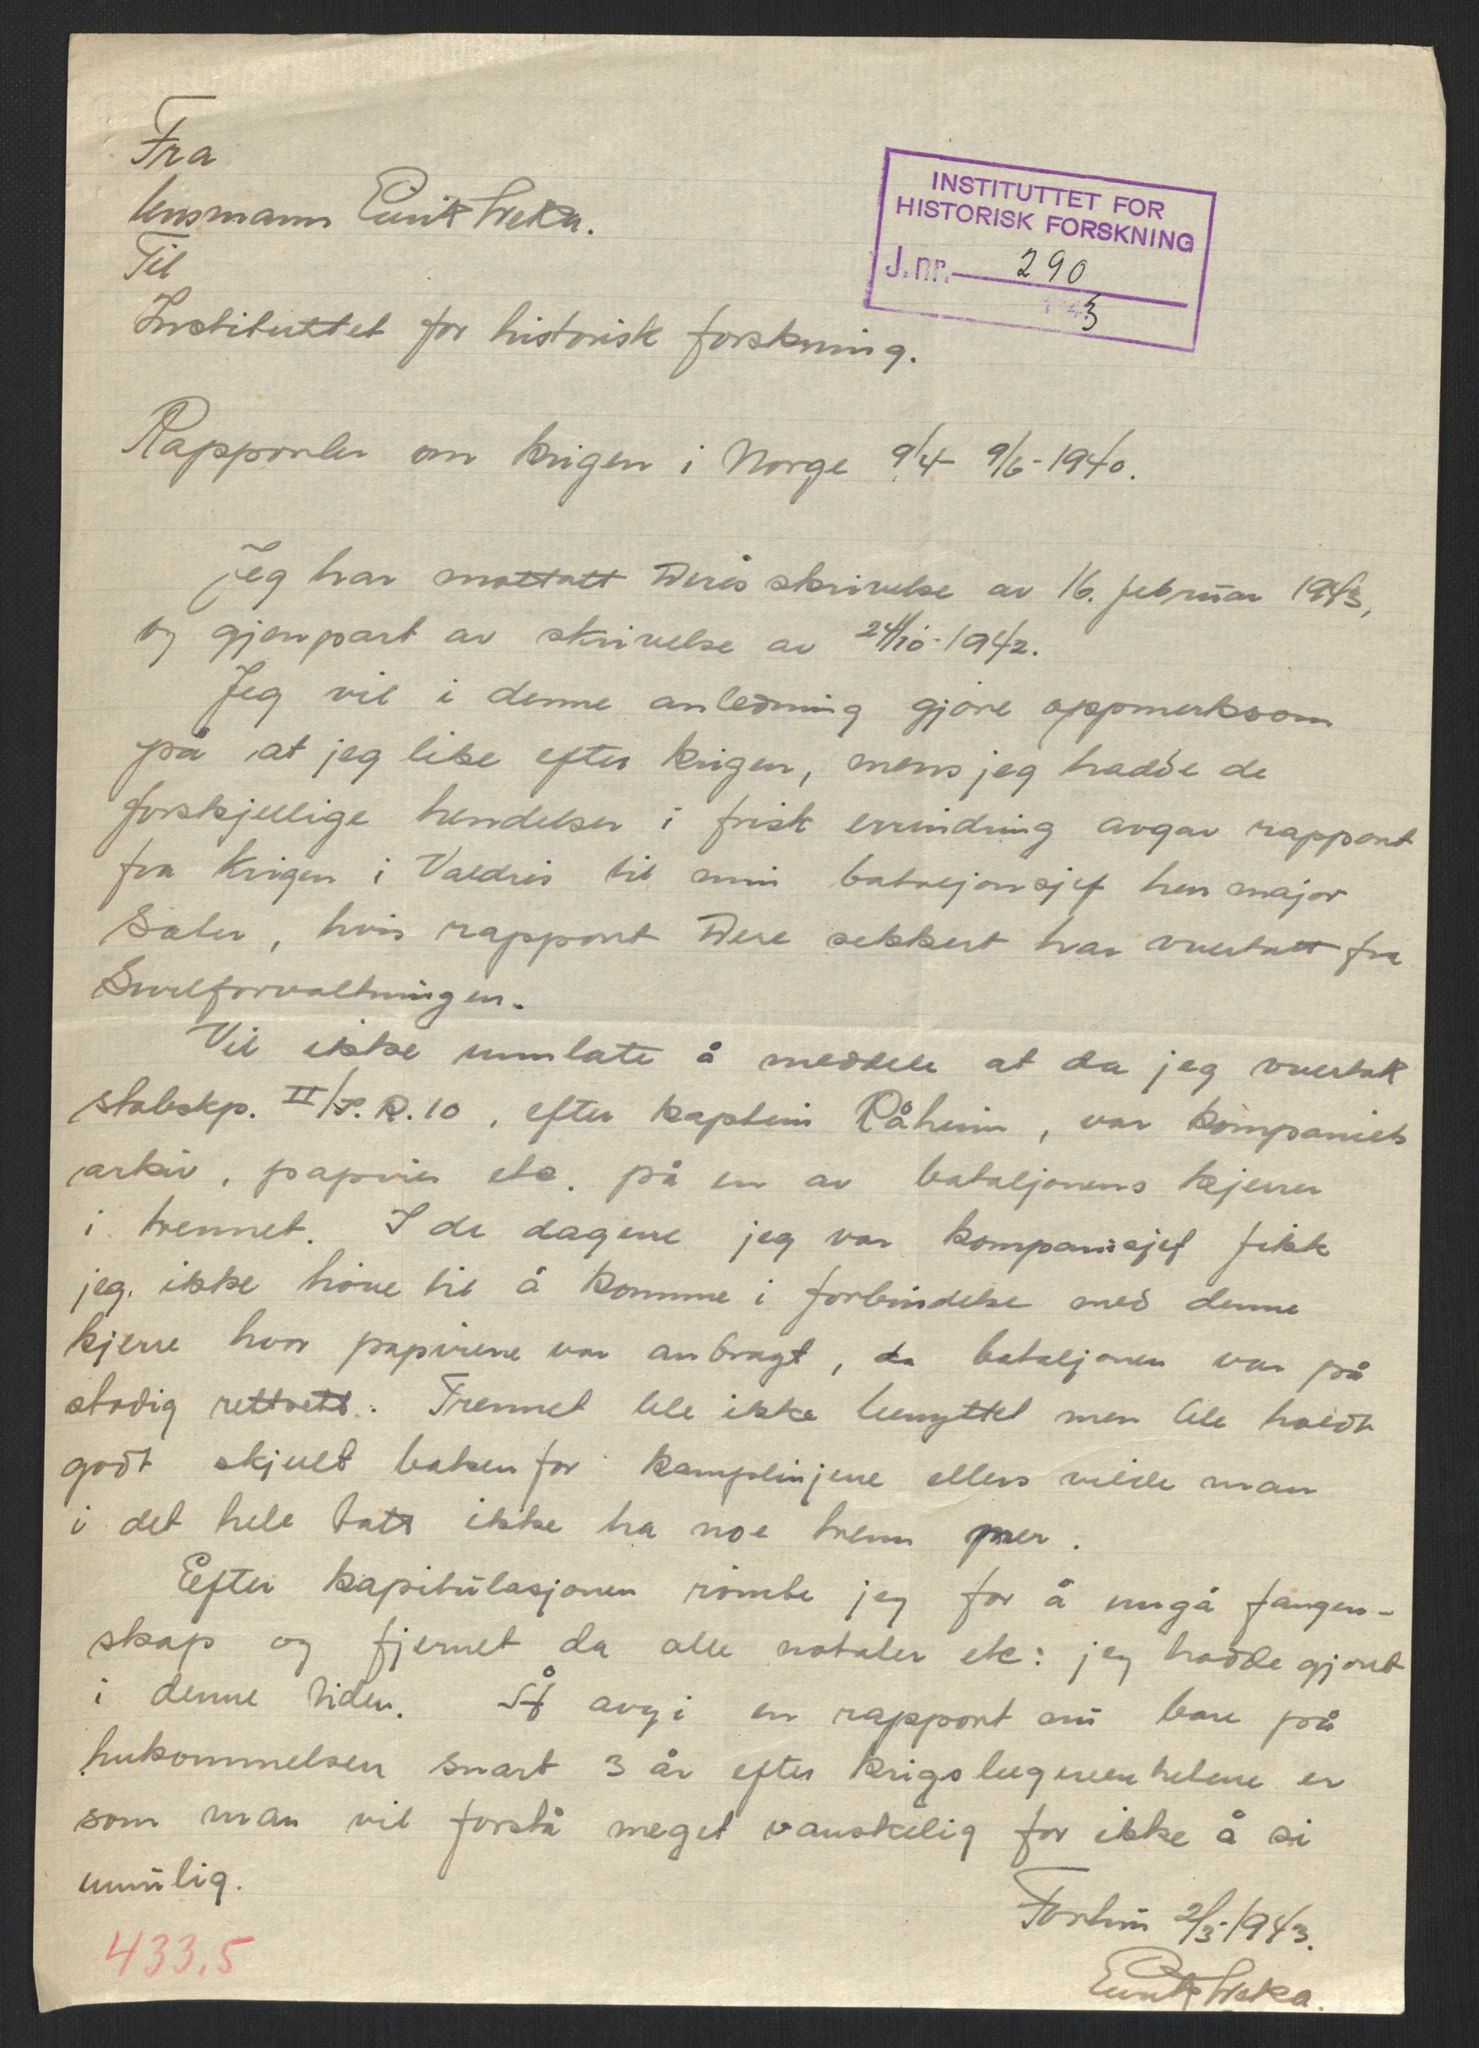 Fra
lensmann Eirik
Til
Instituttet for historisk forskning.
INSTITUTTET FOR
HISTORISK FORSKNING
J. nr. 290
3
Rapporter om krigen i Norge 9/4 9/6-1940.
Jeg har mottatt Deres skrivelse av 16. februar 1943,
og gjenpart av skrivelse av 24/10-1942.
Jeg vil i denne anledning gjøre oppmerksom
på at jeg like efter krigen, mens jeg hadde de
forskjellige hendelser i frisk erindring avgav rapport
fra krigen i Valdres til min bataljonsjef herr major
Sæter, hvis rapport Dere sikkert har overtatt fra
Sivilforvaltningen.
Vil ikke unnlate å meddele at da jeg overtok
stabskp. II/I.R.10, efter kaptein Råheim, var kompaniets
arkiv, papirer etc. på en av bataljonens kjerrer
i trennet. I de dagene jeg var kompanisjef fikk
jeg ikke høve til å komme i forbindelse med denne
kjerre hvor papirene var anbragt, da bataljonen var på
stadig rettrett. Trennet ble ikke benyttet men ble holdt
godt skjult bakenfor kamplinjene ellers vilde man
i det hele tatt ikke ha noe trenn mer.
Efter kapitulasjonen rømte jeg for å unngå fangen-
skap og fjernet da alle notater etc. jeg hadde gjort
i denne tiden. Å avgi en rapport nu bare på
hukommelsen snart 3 år efter krigsbegivenhetene er
som man vil forstå meget vanskelig for ikke å si
umulig.
Fortun 2/3-1943.
Eirik
433.5